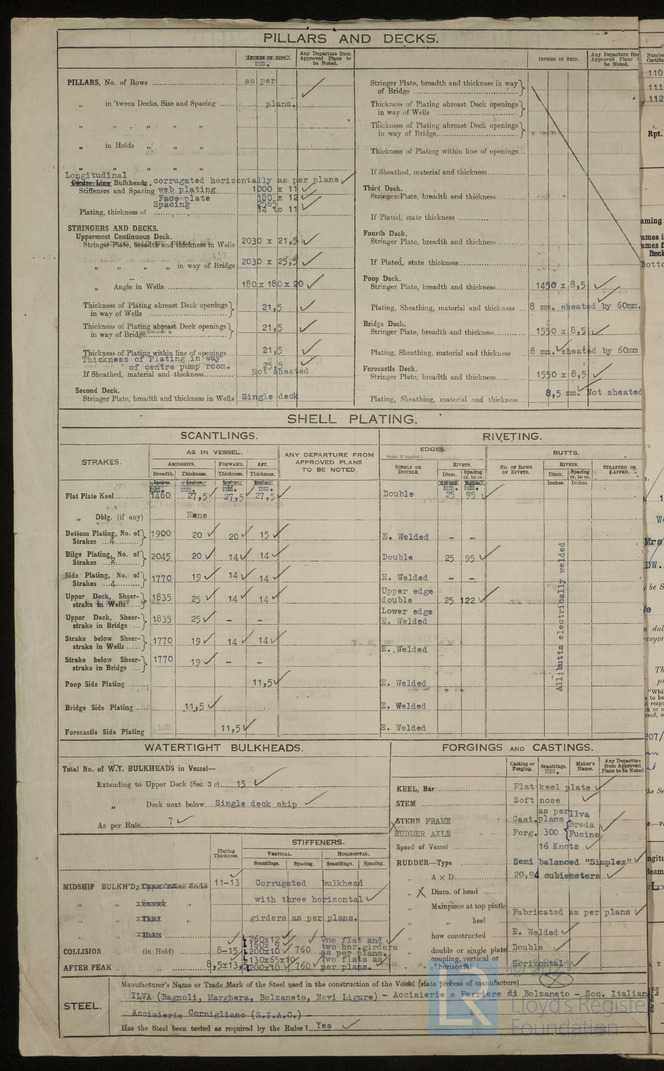 PILLARS AND DECKS.
INCHES IN SHIP.
Any Departure from Approved Plans to be Noted.
PILLARS, No. of Rows as per
„ in 'tween Decks, Size and Spacing plans.
„ „ „ „
„ in Holds „ „
„ „ „ „
Longitudinal
Bulkheads, corrugated horizontally as per plans
Stiffeners and Spacing web plating 1000 x 11
Face plate 180 x 12
Spacing
Plating, thickness of 14 to 11
STRINGERS AND DECKS.
Uppermost Continuous Deck.
Stringer Plate, breadth and thickness in Wells 2030 x 21,5
„ „ „ „ in way of Bridge 2030 x 25,5
„ Angle in Wells 180 x 180 x 20
Thickness of Plating abreast Deck openings in way of Wells 21,5
Thickness of Plating abreast Deck openings in way of Bridge 21,5
Thickness of Plating within line of openings 21,5
Thickness of Plating in way
of centre pump room.
If Sheathed, material and thickness Not sheated
Second Deck.
Stringer Plate, breadth and thickness in Wells Single deck
INCHES IN SHIP.
Any Departure from Approved Plans to be Noted.
Stringer Plate, breadth and thickness in way of Bridge
Thickness of Plating abreast Deck openings in way of Wells
Thickness of Plating abreast Deck openings in way of Bridge
Thickness of Plating within line of openings
If Sheathed, material and thickness
Third Deck.
Stringer Plate, breadth and thickness
If Plated, state thickness
Fourth Deck.
Stringer Plate, breadth and thickness
If Plated, state thickness
Poop Deck.
Stringer Plate, breadth and thickness 1450 x 8,5
Plating, Sheathing, material and thickness 8 mm. sheated by 60mm.
Bridge Deck.
Stringer Plate, breadth and thickness 1550 x 8,5
Plating, Sheathing, material and thickness 8 mm. sheated by 60mm
Forecastle Deck.
Stringer Plate, breadth and thickness 1550 x 8,5
Plating, Sheathing, material and thickness 8,5 mm. Not sheated
SHELL PLATING.
SCANTLINGS.
RIVETING.
STRAKES.
AS IN VESSEL.
AMIDSHIPS. FORWARD. AFT.
Breadth. Thickness. Thickness. Thickness.
ANY DEPARTURE FROM APPROVED PLANS TO BE NOTED.
EDGES.
SINGLE OR DOUBLE.
RIVETS.
Diam. Spacing cr. to cr.
BUTTS.
No. OF ROWS OF RIVETS.
RIVETS.
Diam. Spacing cr. to cr.
Inches Inches
STRAPPED OR LAPPED.
Flat Plate Keel 1460 27,5 27,5 27,5 Double 25 95
„ Dblg. (if any) None
Bottom Plating, No. of Strakes 1900 20 20 15 E. Welded – –
Bilge Plating, No. of Strakes 2045 20 14 14 Double 25 95
Side Plating, No. of Strakes 4 1770 19 14 14 E. Welded – –
Upper Deck, Sheerstrake in Wells 1835 25 14 14 Upper edge double 25 122
Upper Deck, Sheerstrake in Bridge 1835 25 – – Lower edge E. Welded
Strake below Sheerstrake in Wells 1770 19 14 14 E. Welded
Strake below Sheerstrake in Bridge 1770 19 – –
Poop Side Plating 11,5 E. Welded
Bridge Side Plating 11,5 E. Welded
Forecastle Side Plating 11,5 E. Welded
All butts electrically welded
WATERTIGHT BULKHEADS.
Total No. of W.T. BULKHEADS in Vessel—
Extending to Upper Deck (Sec. 3 c) 15
„ Deck next below Single deck ship
As per Rule 7
Plating Thickness.
STIFFENERS.
VERTICAL. HORIZONTAL.
Scantlings. Spacing. Scantlings. Spacing.
MIDSHIP BULKH'D, 11-13 Corrugated bulkhead
with three horizontal
girders as per plans.
COLLISION (in Hold) 8-15 200x10 760 One flat and two hor. girders as per plans.
AFTER PEAK 8,5x13, 130x65x10 200x10 760 Two flats as per plans.
FORGINGS AND CASTINGS.
Casting or Forging. Scantlings. Maker's Name. Any Departure from Approved Plans to be Noted
KEEL, Bar Flat keel plate
STEM Soft nose
STERN FRAME Cast. as per plans Ilva
RUDDER AXLE Forg. 300 Breda Fucine
Speed of Vessel 16 Knots
RUDDER—Type Semi balanced "Simplex"
„ A × D 20,94 cubimeters
„ Diam. of head
„ Mainpiece at top pintle
„ „ heel Fabricated as per plans
„ how constructed E. Welded
„ double or single plate Double
„ coupling, vertical or horizontal Horizontal
STEEL.
Manufacturer's Name or Trade Mark of the Steel used in the construction of the Vessel (state process of manufacture)
ILVA (Bagnoli, Marghera, Bolzaneto, Novi Ligure) - Acciaierie e Ferriere di Bolzaneto - Soc. Italian
Acciaierie Cornigliano (S.I.A.C.)
Has the Steel been tested as required by the Rules? Yes
Lloyd's Register
Foundation
Rpt.